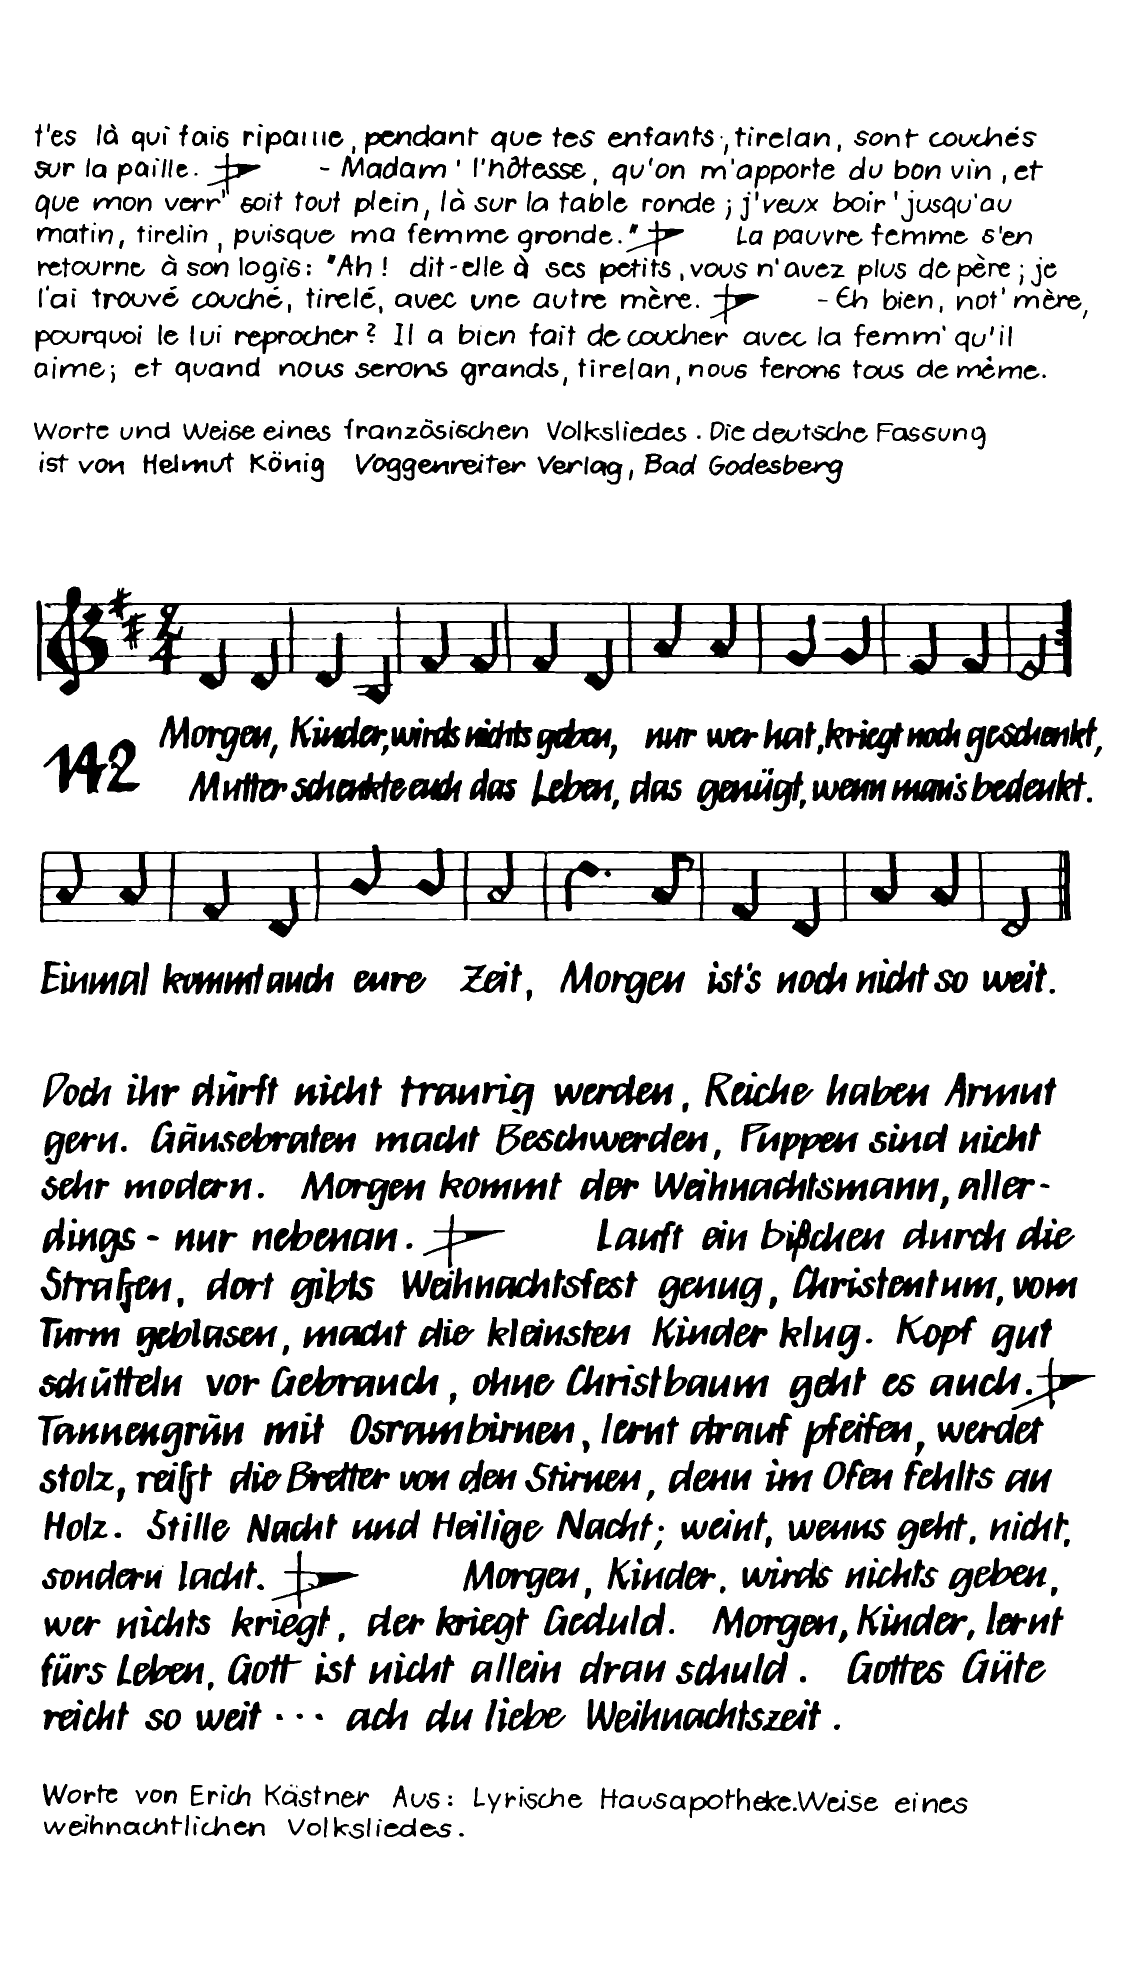 t'es là qui fais ripaille, pendant que tes enfants, tirelan, sont couchés
sur la paille. - Madam' l'hôtesse, qu'on m'apporte du bon vin, et
que mon verr' soit tout plein, là sur la table ronde; j'veux boir' jusqu'au
matin, tirelin, puisque ma femme gronde." La pauvre femme s'en
retourne à son logis: "Ah! dit-elle à ses petits, vous n'avez plus de père; je
l'ai trouvé couché, tirelé, avec une autre mère. - Eh bien, not' mère,
pourquoi le lui reprocher? Il a bien fait de coucher avec la femm' qu'il
aime; et quand nous serons grands, tirelan, nous ferons tous de même.
Worte und Weise eines französischen Volksliedes. Die deutsche Fassung
ist von Helmut König Voggenreiter Verlag, Bad Godesberg
2/4
142 Morgen, Kinder, wirds nichts geben, nur wer hat, kriegt noch geschenkt,
Mutter schenkte euch das Leben, das genügt, wenn man's bedenkt.
Einmal kommt auch eure Zeit, Morgen ist's noch nicht so weit.
Doch ihr dürft nicht traurig werden, Reiche haben Armut
gern. Gänsebraten macht Beschwerden, Puppen sind nicht
sehr modern. Morgen kommt der Weihnachtsmann, aller-
dings - nur nebenan. Lauft ein bißchen durch die
Straßen, dort gibts Weihnachtsfest genug, Christentum, vom
Turm geblasen, macht die kleinsten Kinder klug. Kopf gut
schütteln vor Gebrauch, ohne Christbaum geht es auch.
Tannengrün mit Osrambirnen, lernt drauf pfeifen, werdet
stolz, reißt die Bretter von den Stirnen, denn im Ofen fehlts an
Holz. Stille Nacht und Heilige Nacht; weint, wenns geht, nicht,
sondern lacht. Morgen, Kinder, wirds nichts geben,
wer nichts kriegt, der kriegt Geduld. Morgen, Kinder, lernt
fürs Leben, Gott ist nicht allein dran schuld. Gottes Güte
reicht so weit ... ach du liebe Weihnachtszeit.
Worte von Erich Kästner Aus: Lyrische Hausapotheke. Weise eines
weihnachtlichen Volksliedes.